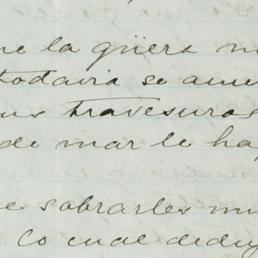 me la güera m
todavia se acue
sus travesuras
de mar le ha
e sobrarles mu
lo cual deduj